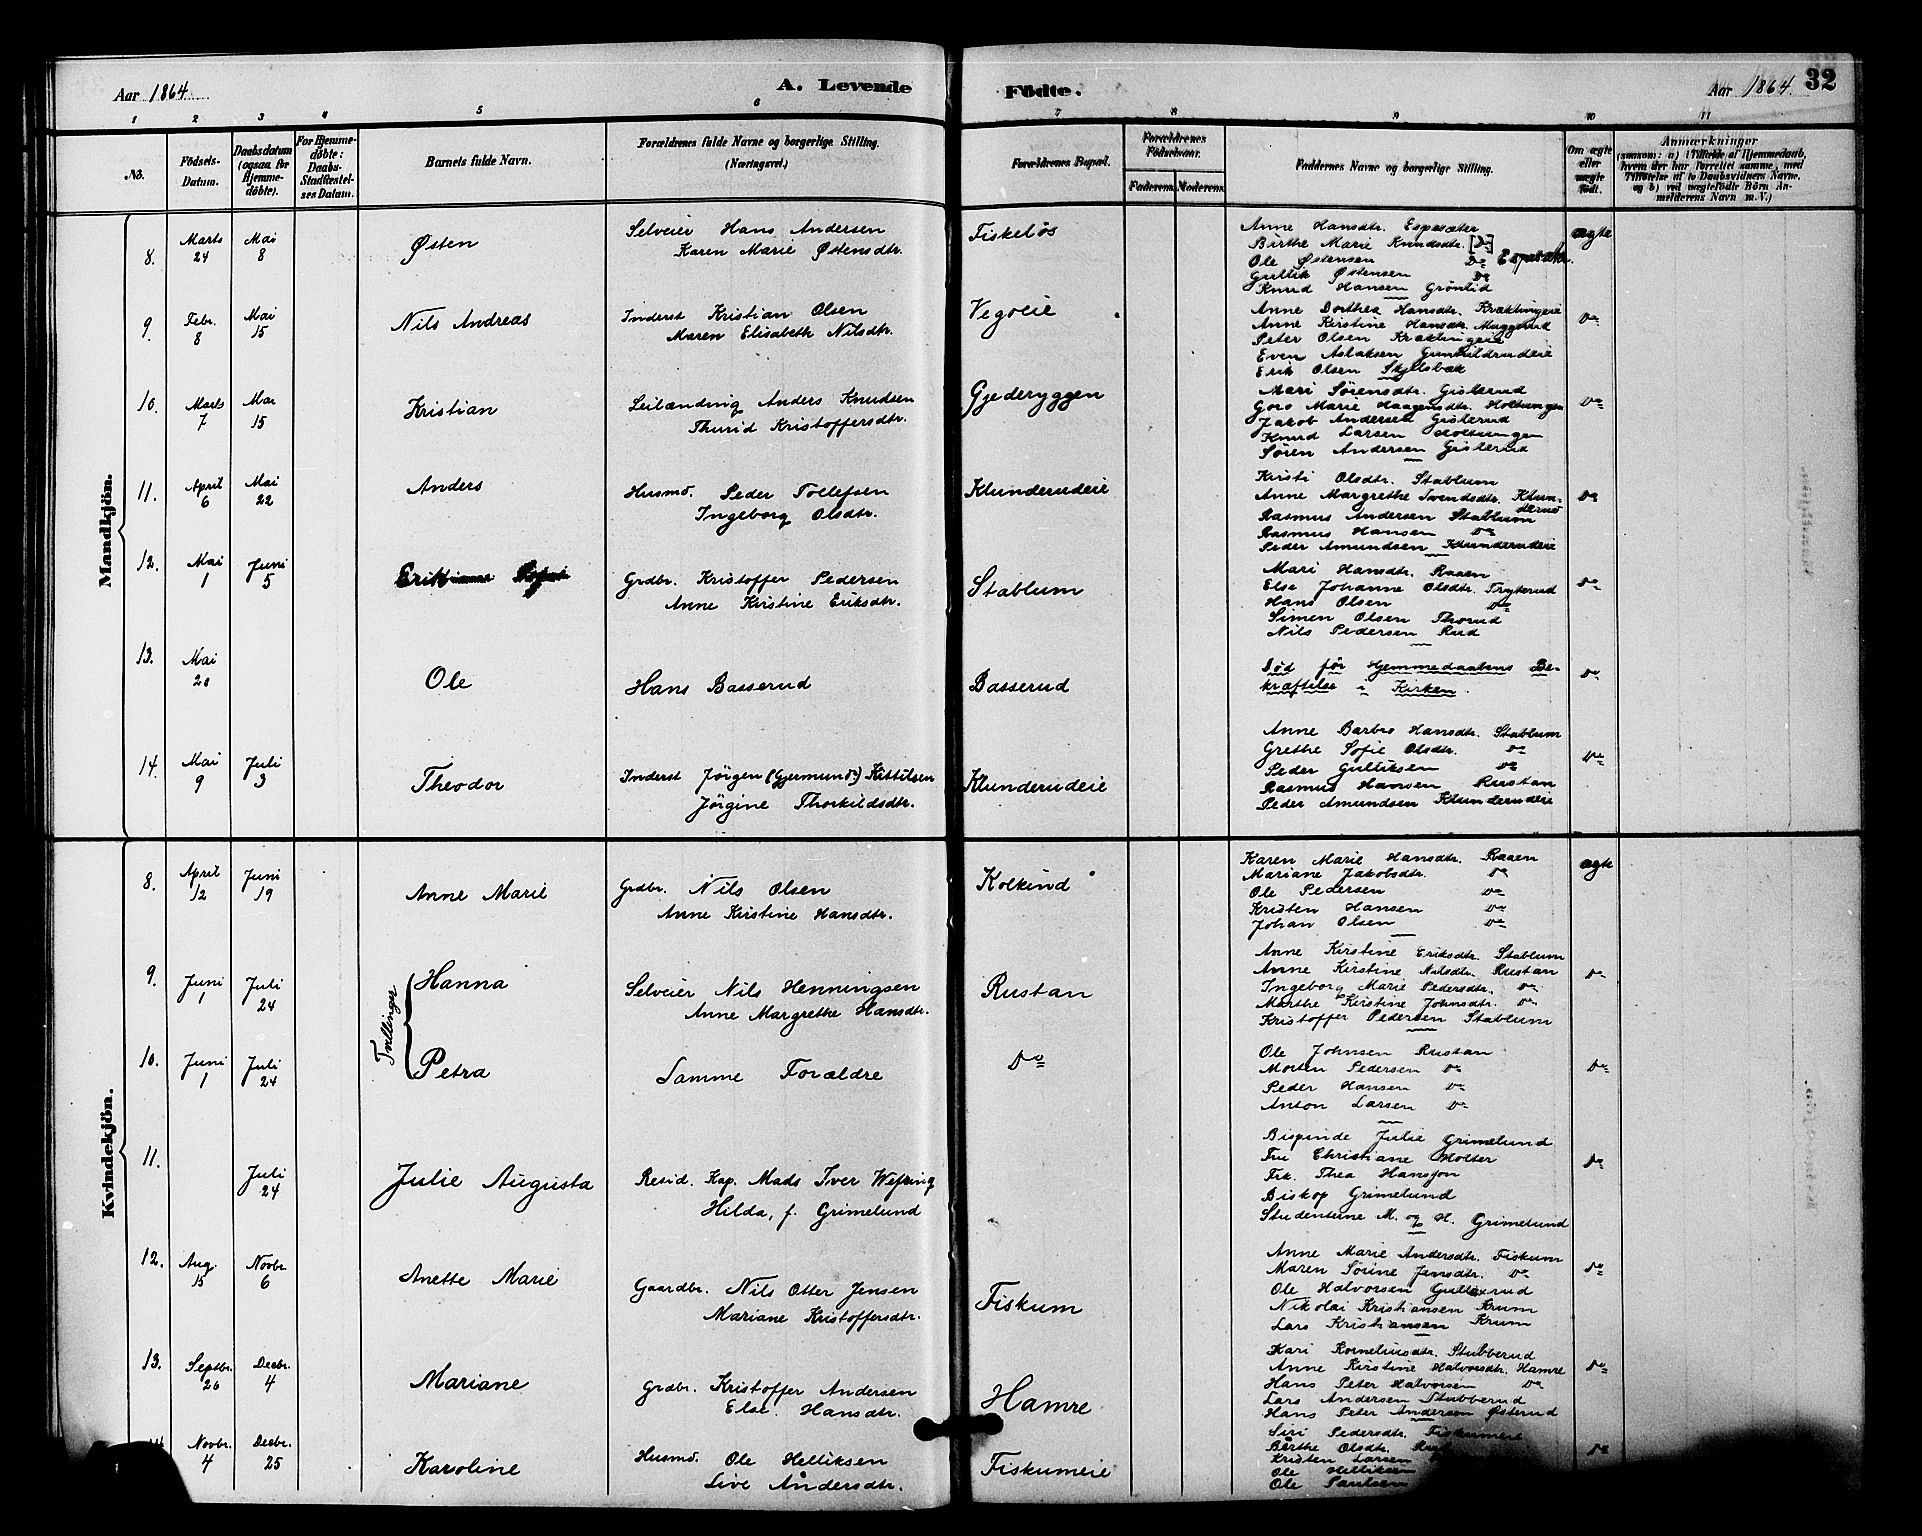 Aar 1864
A. Levende
Födte.
Aar 1864. 32
1 2 3 4 5 6 7 8 9 10 11
No.
Födsels-Datum.
Daabsdatum (ogsaa for Hjemme-döbte).
For Hjemme-döbte: Daabs-Stadfæstel-ses Datum.
Barnets fulde Navn.
Forældrenes fulde Navne og borgerlige Stilling. (Næringsvei.)
Forældrenes Bopæl.
Forældrenes Födselsaar.
Faderens. Moderens.
Faddernes Navne og borgerlige Stilling.
Om ægte eller uægte født.
Anmærkninger
(saasom: a) i Tilfælde af Hjemmedaab, hvem der har forrettet samme, med Tilföielse af to Daabsvidners Navne, og b) ved uægtefödte Börn An-melderens Navn m. V.)
Mandkjön.
8. Marts 24 Mai 8 Østen
Selveier Hans Andersen
Karen Marie Østensdtr.
Fiskeløs
Anne Hansdtr. Espesæter
Birthe Marie Knudsdtr. [Do]
Ole Østensen Do Espesæter.
Gullik Østensen Do
Knud Hansen Grönlid
ægte
9. Febr. 8 Mai 15 Nils Andreas
Inderst Kristian Olsen
Maren Elisabeth Nilsdtr.
Vegoeie
Anne Dorthea Hansdtr. Kræklingeie
Anne Kirstine Hansdtr. Muggerud
Peter Olsen Kræklingeie
Even Aslaksen Gunnildrudeie
Erik Olsen Skjelsbæk
Do
10. Marts 7 Mai 15 Kristian
Leilænding Anders Knudsen
Thurid Kristoffersdtr.
Gjederyggen
Mari Sörensdtr. Gislerud
Goro Marie Haagensdtr. Holtungen
Jakob Andersen Gislerud
Knud Larsen Holtungen
Sören Andersen Gislerud
Do
11. April 6 Mai 22 Anders
Husmd. Peder Tollefsen
Ingeborg Olsdtr.
Klunderudeie
Kristi Olsdtr. Stablum
Anne Margrethe Svendsdtr. Klun-
derud
Rasmus Andersen Stablum
Rasmus Hansen Do
Peder Amundsen Klunderudeie
Do
12. Mai 1 Juni 5
Grdbr. Kristoffer Pedersen
Anne Kirstine Eriksdtr.
Stablum
Mari Hansdtr. Raaen
Else Johanne Olsdtr. Tryterud
Hans Olsen Do
Simen Olsen Thorud
Nils Pedersen Rud
Do
13. Mai 20 Ole
Hans Basserud
Basserud
Död før Hjemmedaabens Be-
kræftelse i Kirken.
Do
14. Mai 9 Juli 3 Theodor
Inderst Jörgen (Gjermund?) Kittilsen
Jörgine Thorkildsdtr.
Klunderudeie
Anne Barbro Hansdtr. Stablum
Grethe Sofie Olsdtr. Do
Peder Gulliksen Do
Rasmus Hansen Rustan
Peder Amundsen Klunderudeie
Do
Kvindekjön.
8. April 12 Juni 19 Anne Marie
Grdbr. Nils Olsen
Anne Kirstine Hansdtr.
Kolkind
Karen Marie Hansdtr. Raaen
Mariane Jakobsdtr. Do
Ole Pedersen Do
Kristen Hansen Do
Johan Olsen Do
ægte
9. Juni 1 Juli 24 Hanna
Tvillinger
Selveier Nils Henningsen
Anne Margrethe Hansdtr.
Rustan
Anne Kirstine Eriksdtr. Stablum
Anne Kirstine Nilsdtr. Rustan
Ingeborg Marie Pedersdtr. Do
Marthe Kirstine Johnsdtr. Do
Kristoffer Pedersen Stablum
Do
10. Juni 1 Juli 24 Petra
Samme Forældre
Do
Ole Johnsen Rustan
Morten Pedersen Do
Peder Hansen Do
Anton Larsen Do
Do
11. Juli 24 Julie Augusta
Resid. Kap. Mads Iver Wefring
Hilda, f. Grimelund
Bispinde Julie Grimelund
Fru Christiane Molter
Frk. Thea Hansson
Biskop Grimelund
Studenterne M. og H. Grimelund
Do
12. Aug. 15 Novbr. 6 Anette Marie
Gaardbr. Nils Otter Jensen
Mariane Kristoffersdtr.
Fiskum
Anne Marie Andersdtr. Fiskum
Maren Sörine Jensdtr. Do
Ole Halvorsen Gullaxrud
Nikolai Kristiansen Krum
Lars Kristiansen Krum
Do
13. Septbr. 26 Decbr. 4 Mariane
Grdbr. Kristoffer Andersen
Else Hansdtr.
Hamre
Kari Korneliusdtr. Stubberud
Anne Kirstine Halvorsdtr. Hamre
Hans Peter Halvorsen Do
Lars Andersen Stubberud
Hans Peter Andersen Østerud
Do
14 Novbr. 4 Decbr. 25 Karoline
Husmd. Ole Helliksen
Live Åndersdtr.
Fiskumeie
Siri Pedersdtr. Fiskumeie
Birthe Olsdtr.
Kristen Larsen
Ole Helliksen
Ole Paulsen
Do